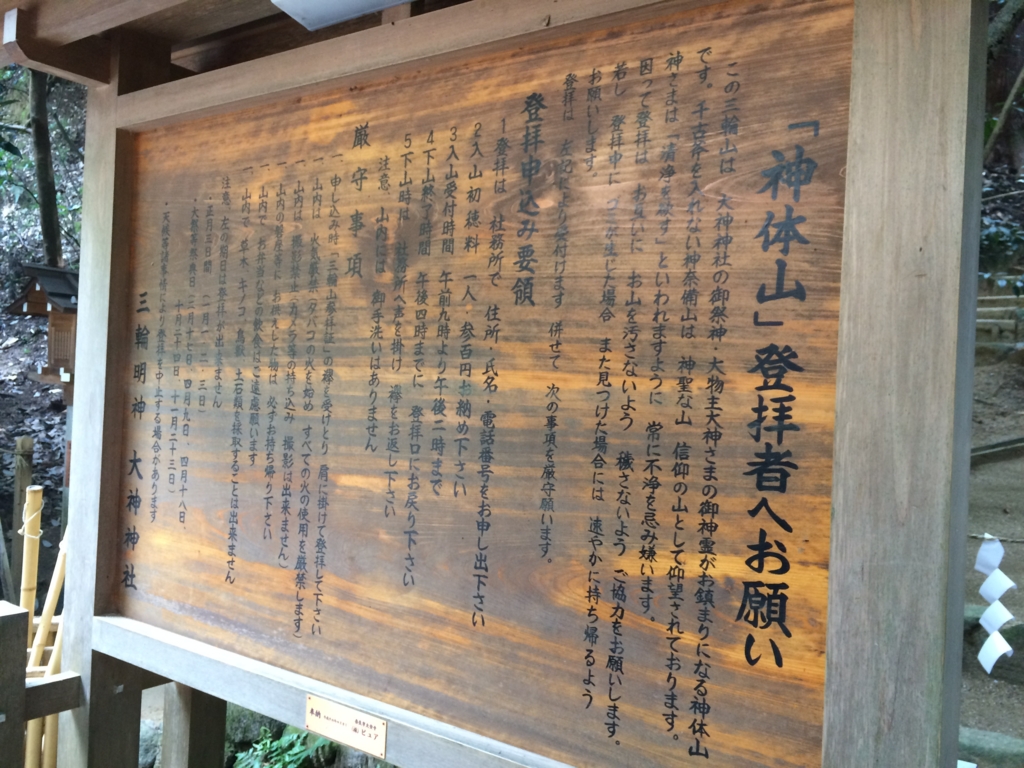 「神体山」登拝者へお願い
この三輪山は 大神神社の御祭神・大物主大神さまの御神霊がお鎮まりになる神体山
です。千古斧を入れない神奈備山は 神聖な山 信仰の山として仰望されております。
神さまは「清浄を尊す」といわれますように 常に不浄を忌み嫌います。
因って登拝は お互いに お山を汚さないよう 穢さないよう ご協力をお願いします。
若し 登拝中に ゴミが生じた場合 また見つけた場合には 速やかに持ち帰るよう
お願いします。
登拝は 左記により受付けます 併せて 次の事項を厳守願います。
登拝申込み要領
1登拝は 社務所で 住所・氏名・電話番号をお申し出下さい
2入山初穂料 一人・参百円お納め下さい
3入山受付時間 午前九時より午後二時まで
4下山終了時間 午後四時までに 登拝口にお戻り下さい
5下山時は 社務所へ声を掛け 襷をお返し下さい
注意 山内には 御手洗いはありません
厳守事項
一 申し込み時「三輪山参拝証」の襷を受けとり 肩に掛けて登拝して下さい
一 山内は 火気厳禁(タバコの火を始め すべての火の使用を厳禁します)
一 山内は 撮影禁止(カメラ等の持ち込み 撮影は出来ません)
一 山内の磐座等に お供えした物は 必ずお持ち帰り下さい
一 山内で お弁当などの飲食はご遠慮願います
一 山内の 草木、キノコ、鳥獣、土石類を採取することは出来ません
注意、左の期日は登拝が出来ません
・正月三日間 (一月一、二、三日)
・大祭等祭典日(二月十七日、四月九日、四月十八日、
十月二十四日 十一月二十三日)
・天候等諸事情により登拝を中止する場合があります
三輪明神 大神神社
奉納
(株)ピュア